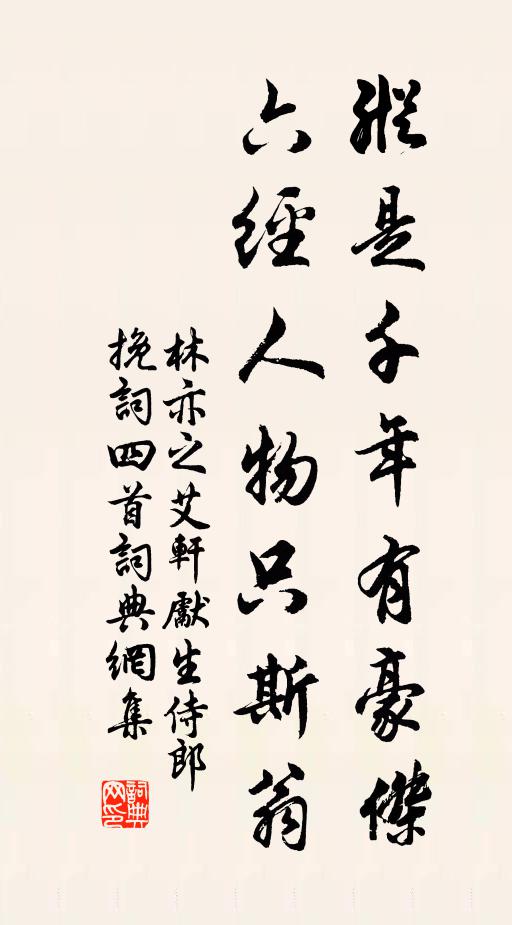 縱是千年有豪傑
六經人物只斯翁
林亦之艾軒獻生侍郎
挽詞四首詞典網集
詞典网印